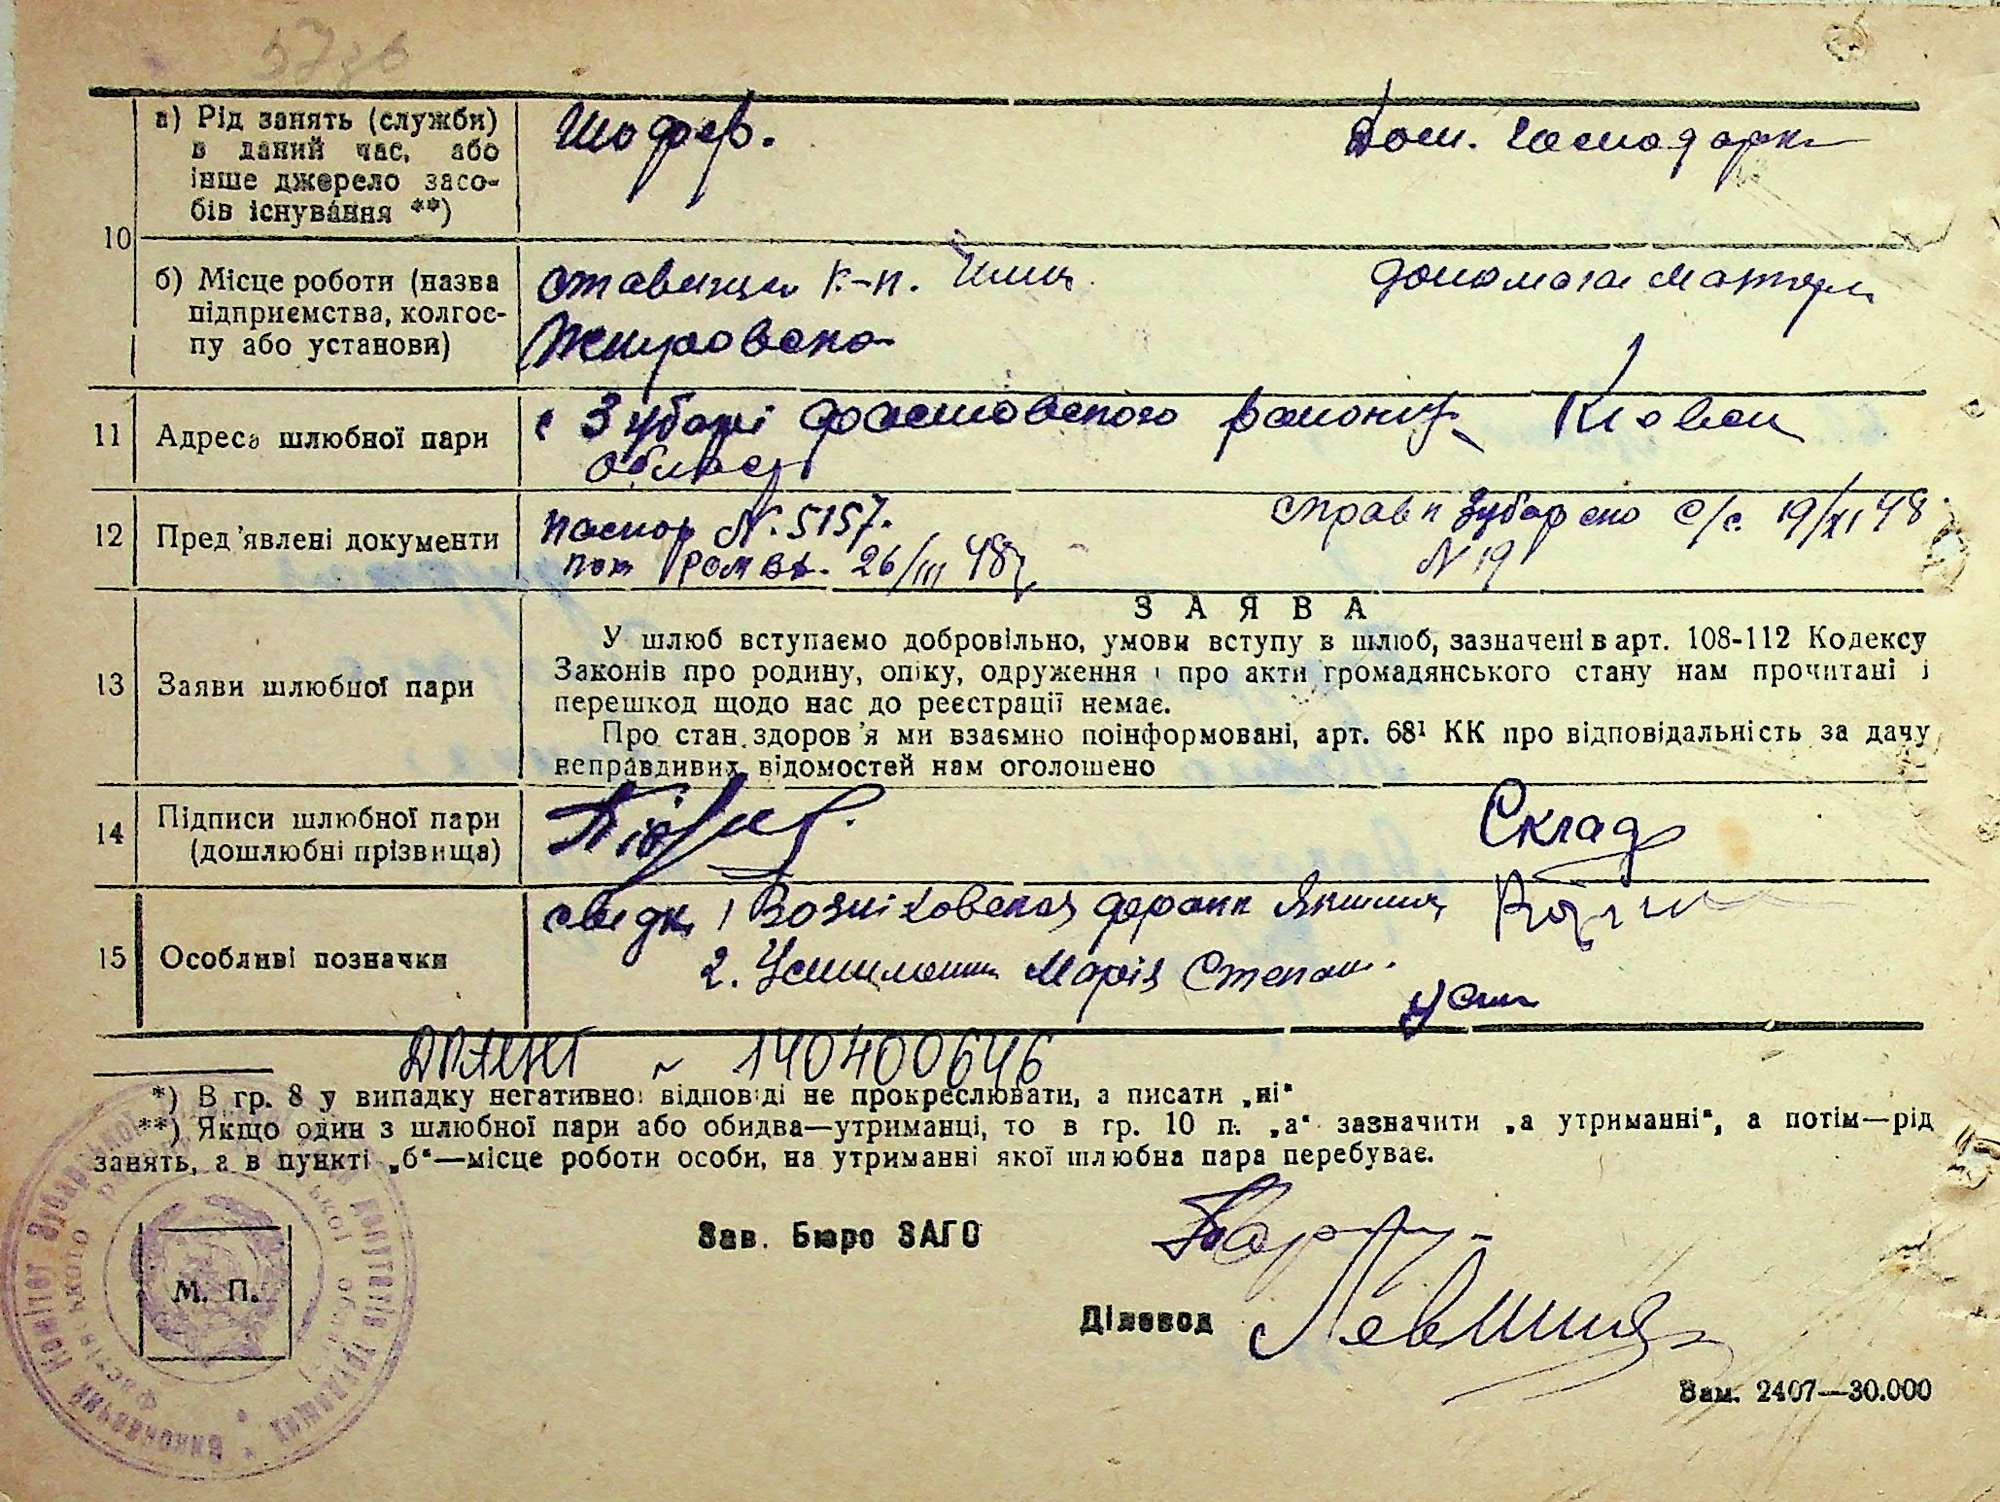 а) Рід занять (служби) в даний час, або інше джерело засобів існування **)
Шофер.
Дом. господарк
10
б) Місце роботи (назва підприємства, колгоспу або установи)
к-п.
допомога матері
11 Адреса шлюбної пари
с Зубарі Фастовского району Киевск
області
12 Пред'явлені документи
паспор N. 5157.
26/III 48
справк Зубарско с/с. 19/XI 48
N 19
13 Заяви шлюбної пари
ЗАЯВА
У шлюб вступаємо добровільно, умови вступу в шлюб, зазначені в арт. 108-112 Кодексу
Законів про родину, опіку, одруження і про акти громадянського стану нам прочитані і
перешкод щодо нас до реєстрації немає.
Про стан здоров'я ми взаємно поінформовані, арт. 68¹ КК про відповідальність за дачу
неправдивих відомостей нам оголошено
14 Підписи шлюбної пари
(дошлюбні прізвища)
Склад
15 Особливі позначки
свидк 1
2. Марія Степан.
Усти
140400646
*) В гр. 8 у випадку негативної відповіді не прокреслювати, а писати „ні“
**) Якщо один з шлюбної пари або обидва—утриманці, то в гр. 10 п. „а“ зазначити „а утриманні“, а потім—рід
занять, а в пункті „б“—місце роботи особи, на утриманні якої шлюбна пара перебуває.
Зав. Бюро ЗАГС
М. П.
Діловод
Зам. 2407—30.000